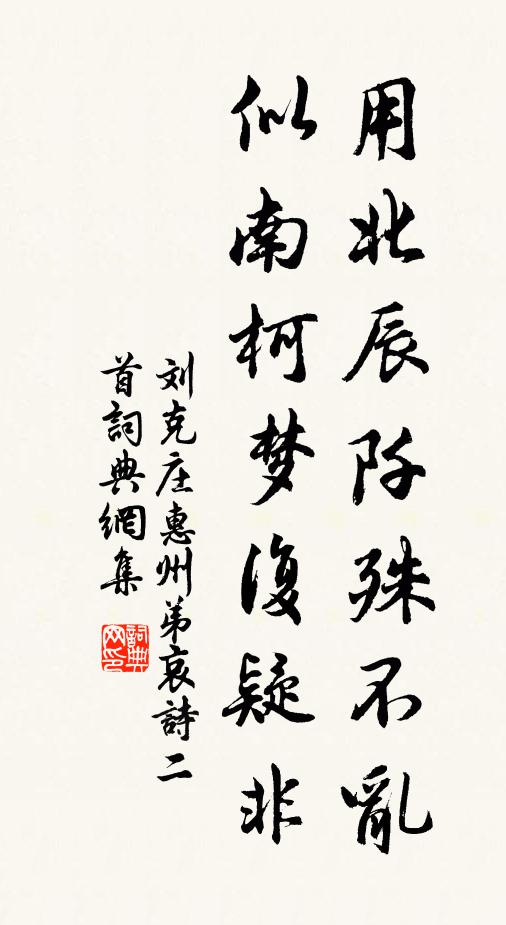 用北辰阡殊不亂
似南柯梦復疑非
刘克庄惠州弟哀詩二
首詞典網集
詞典网印